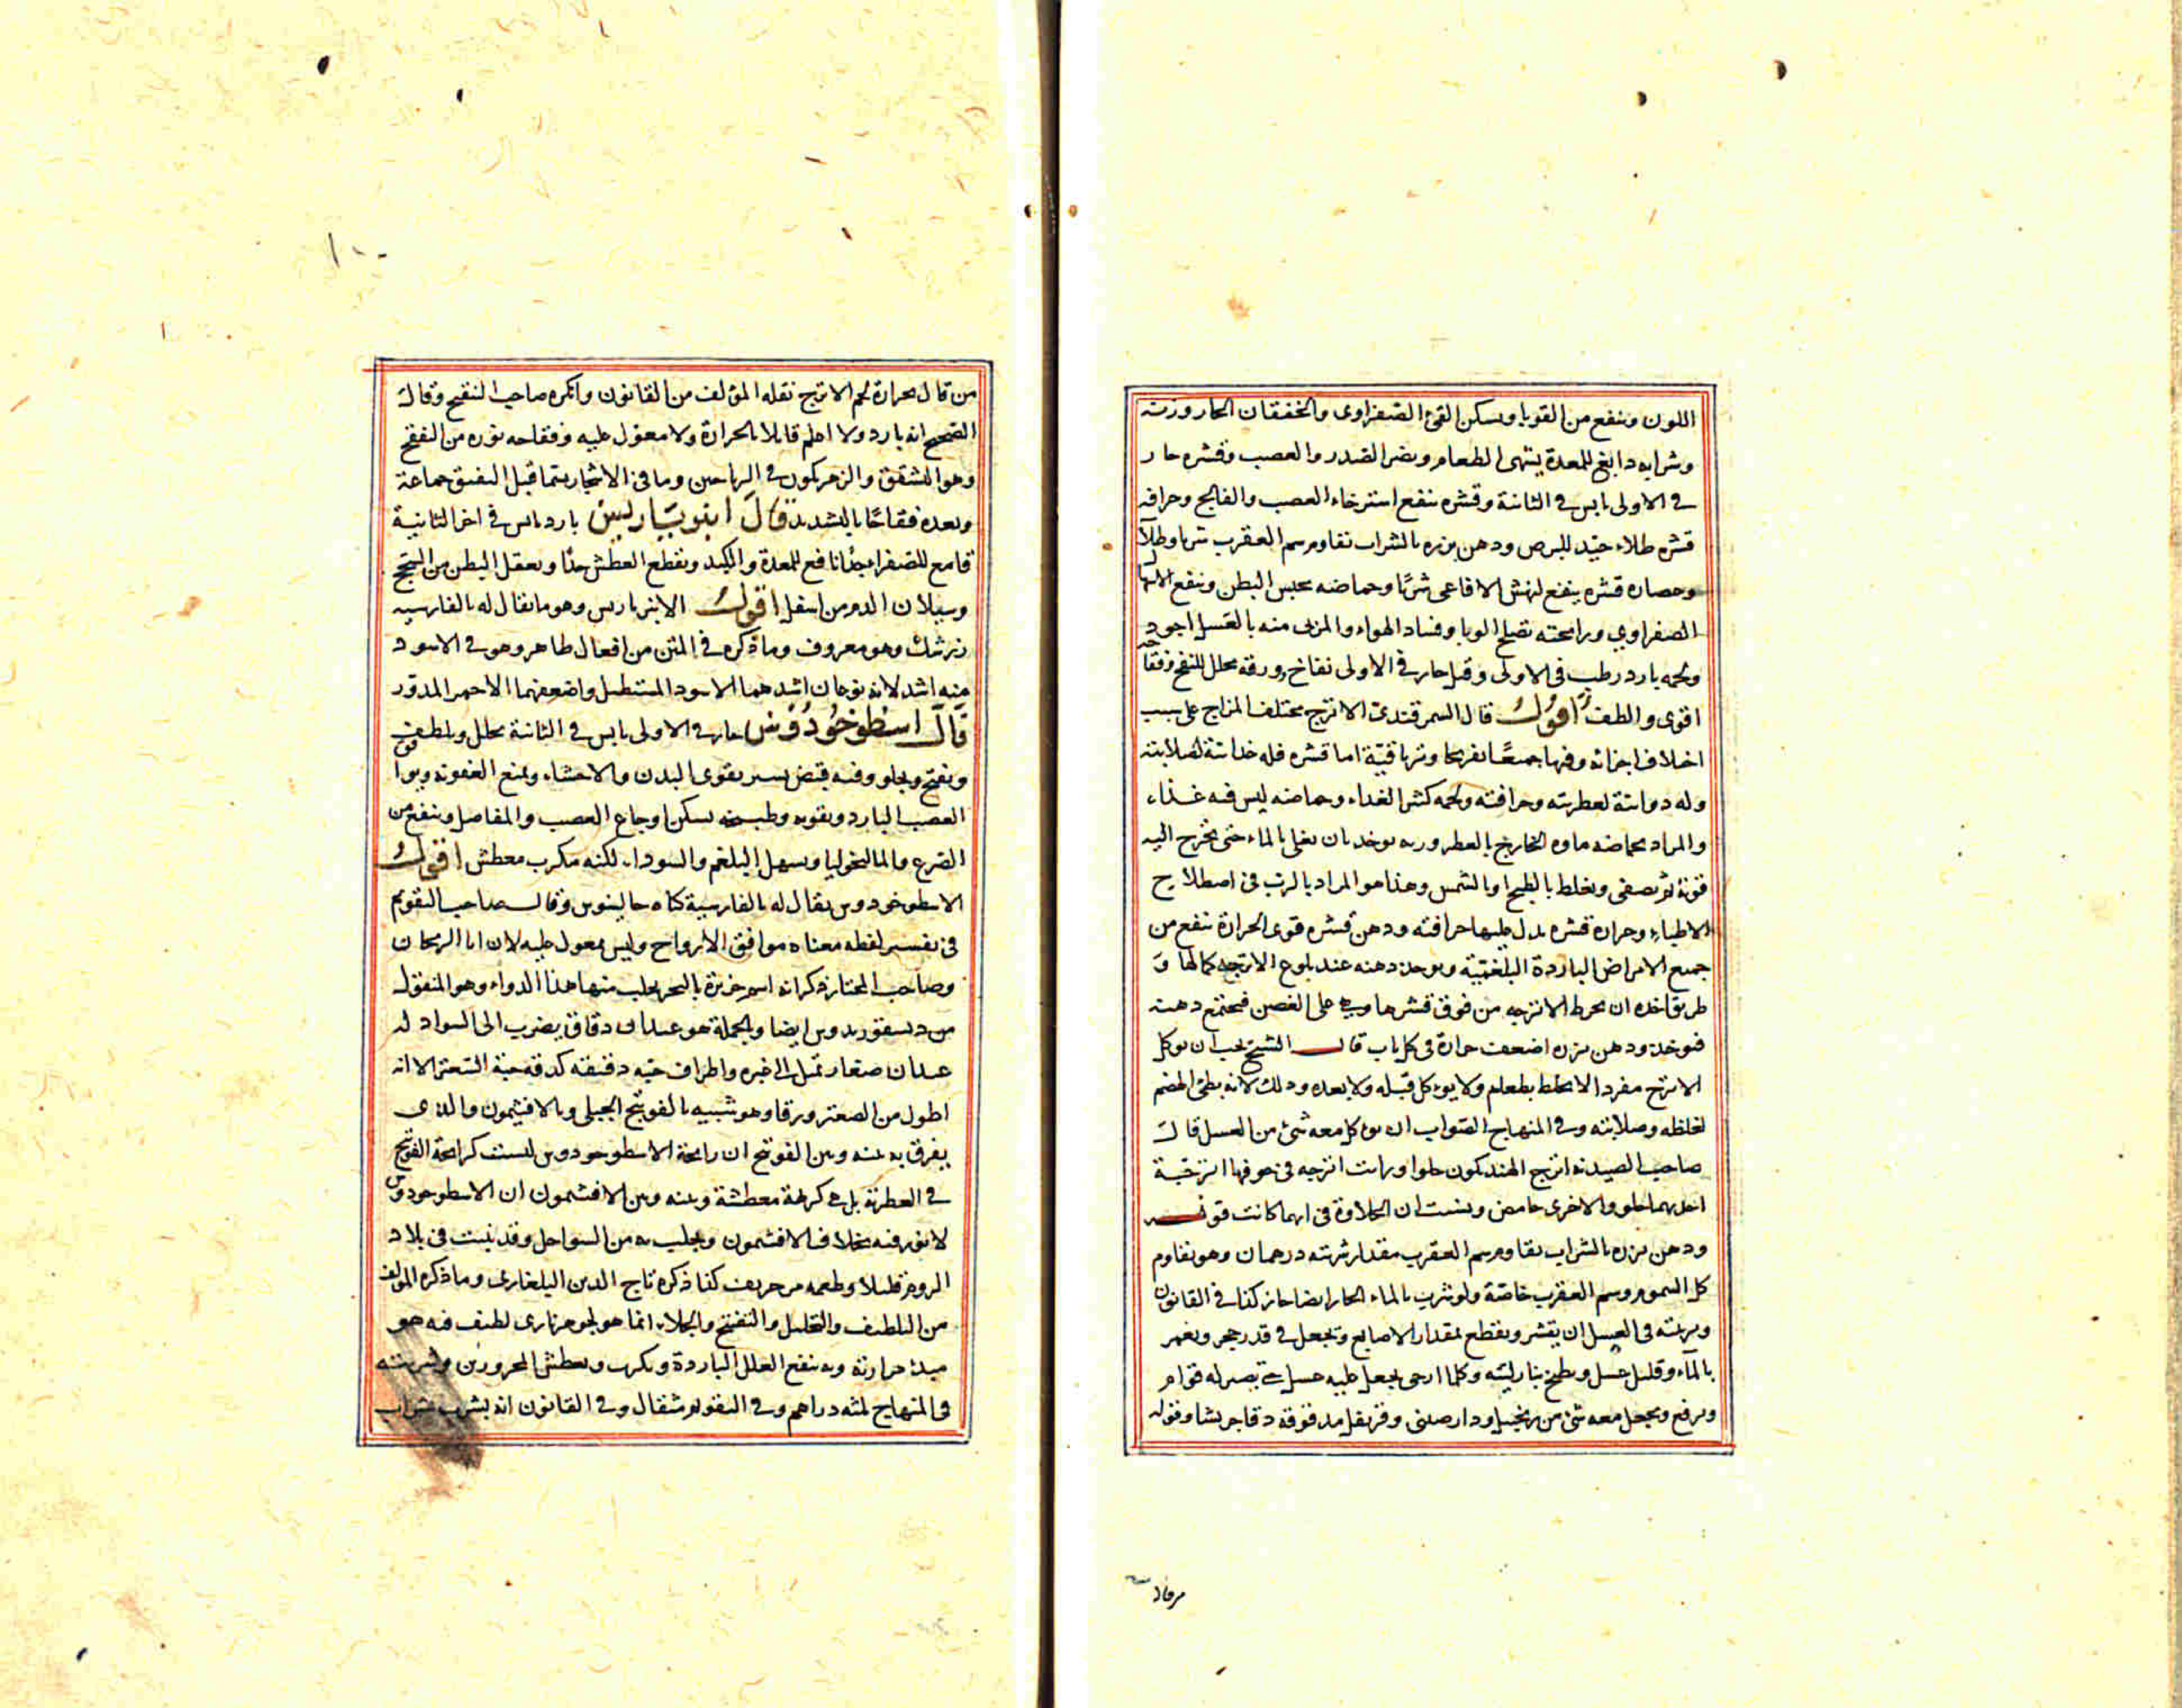 اللون وينفع من القوبا ويسكن القئ الصفراوى والخفقان الحار وزيته
وشرابه دابغ للمعدة يشهى الطعام ويضر الصدر والعصب وقشره حار
فى الاولى يابس فى الثانية وقشره ينفع استرخاء العصب والفالج وحراقة
قشره طلاء جيد للبرص ودهن بزره بالشراب يقاوم سم العقرب شربا وطلآ
وعصارة قشره ينفع لنهش الافاعى شربًا وحماضه يحبس البطن وينفع الاسهال
الصفراوي ورايحته تصلح الوبا وفساد الهواء والمربى منه بالعسل اجود
ولحمه بارد رطب فى الاولى وقيل حار فى الاولى نفاخ وورقه محلل للنفخ وفقاحه
اقوى والطف اقول قال السمرقندى الاترج مختلف المزاج على سبب
اختلاف اجزائه وفيها جميعًا تفريحا وترياقية اما قشره فله غذائية لصلابته
وله دوائية لعطريته وحرافته ولحمه كثير الغداء وحماضه ليس فيه غذاء
والمراد بحماضه ماوه الخارج بالعصر وربه يوخد بان يغلى بالماء حتى يخرج اليه
قوته ثم يصفى ويغلظ بالطبخ او بالشمس وهذا هو المراد بالرب فى اصطلاح
الاطباء وحرارة قشره يدل عليها حرافته ودهن قشره قوى الحرارة ينفع من
جميع الامراض الباردة البلغمية ويوخد دهنه عند بلوغ الاترجه كمالها و
طريق اخده ان يخرط الاترجه من فوق قشرها وهى على الغصن فيجتمع دهنه
فيوخد ودهن بزره اضعف حرارة فى كل باب قال الشيخ يجب ان يوكل
الاترج مفردا لا يخلط بطعام ولا يوءكل قبله ولا بعده ودلك لانه بطئ الهضم
لغلظه وصلابته وفى المنهاج الصواب ان يوكل معه شئ من العسل قال
صاحب الصيدنه اترج الهند يكون حلوا ورايت اترجه فى جوفها اترجية
احديهما حلو والاخرى حامض ونسيت ان الحلاوة فى ايهما كانت قوله
ودهن بزره بالشراب يقاوم سم العقرب مقدار شربته درهمان وهو يقاوم
كل السموم وسم العقرب خاصة ولو شرب بالماء الحار ايضا جاز كذا فى القانون
وتربيته فى العسل ان يقشر ويقطع بمقدار الاصابع ويجعل فى قدر حجر ويغمر
بالمآء وقليل عسل ويطبخ بنار لينه وكلما ارخى يجعل عليه عسل حتى يصير له قوام
ويرفع ويجعل معه شئ من زنجبيل ودارصينى وقرنفل مدقوقه دقا جريشا وقوله
من قال
من قال بحرارة لحم الاترج نقله المؤلف من القانون وانكره صاحب التنقيح وقال
الصحيح انه بارد ولا اعلم قايلا بالحرارة ولا معول عليه وفقاحه نوره من التفقح
وهو التشقق والزهر يكون فى الرياحين وما فى الاشجار يسما قبل التفتق جماعة
وبعده فقاحًا بالتشديد قال انبرباريس بارد يابس فى اخر الثانية
قامع للصفرا جدًا نافع للمعدة والكبد ويقطع العطش جدًا ويعقل البطن من السحج
وسيلان الدم من اسفل اقول الانبرباريس وهو ما يقال له بالفارسيه
زرشك وهو معروف وما ذكره فى المتن من افعال ظاهر وهو فى الاسود
منه اشد لانه نوعان اشدهما الاسود المستطيل واضعفهما الاحمر المدور
قال اسطوخودوس حار فى الاولى يابس فى الثانية يحلل ويلطف
ويفتح ويجلو وفيه قبض يسير يقوى البدن والاحشاء ويمنع العفونه ويوافق
العصب البارد ويقويه وطبيخه يسكن اوجاع العصب والمفاصل وينفع من
الصرع والماليخوليا ويسهل البلغم والسوداء لكنه مكرب معطش اقول
الاسطوخودوس يقال له بالفارسية كاه جالينوس وقال صاحب التقويم
فى تفسير لفظه معناه موافق الارواح وليس بمعول عليه لان ابا الريحان
وصاحب المختار ذكرا انه اسم جزيرة بالبحر يجلب منها هذا الدواء وهو المنقول
من ديسقوريدوس ايضا وبالجملة هو عيدان دقاق يضرب الى السواد له
عيدان صغار تميل الى الغبره واطراف حبه دقيقه كدقه حبة السعتر الا انه
اطول من الصعتر ورقا وهو شبيه بالفوتنج الجبلى وبالافتيمون والذى
يفرق به بينه وبين الفوتنج ان رايحة الاسطوخودوس ليست كرايحة الفوتنج
فى العطرية بل هى كريهة معطشة وبينه وبين الافتيمون ان الاسطوخودوس
لا نور فيه بخلاف الافتيمون ويجلب به من السواحل وقد ينبت فى بلاد
الروم قليلا وطعمه مر حريف كذا ذكره تاج الدين البلغارى وما ذكره المولف
من التلطيف والتحليل والتفتيح والجلاء انما هو لجوهر نارى لطيف فيه هو
مبدء حرارته وبه ينفع العلل الباردة ويكرب ويعطش المحرورين وشربته
فى المنهاج ثلثه دراهم وفى التقويم مثقال وفى القانون انه يشرب بشراب